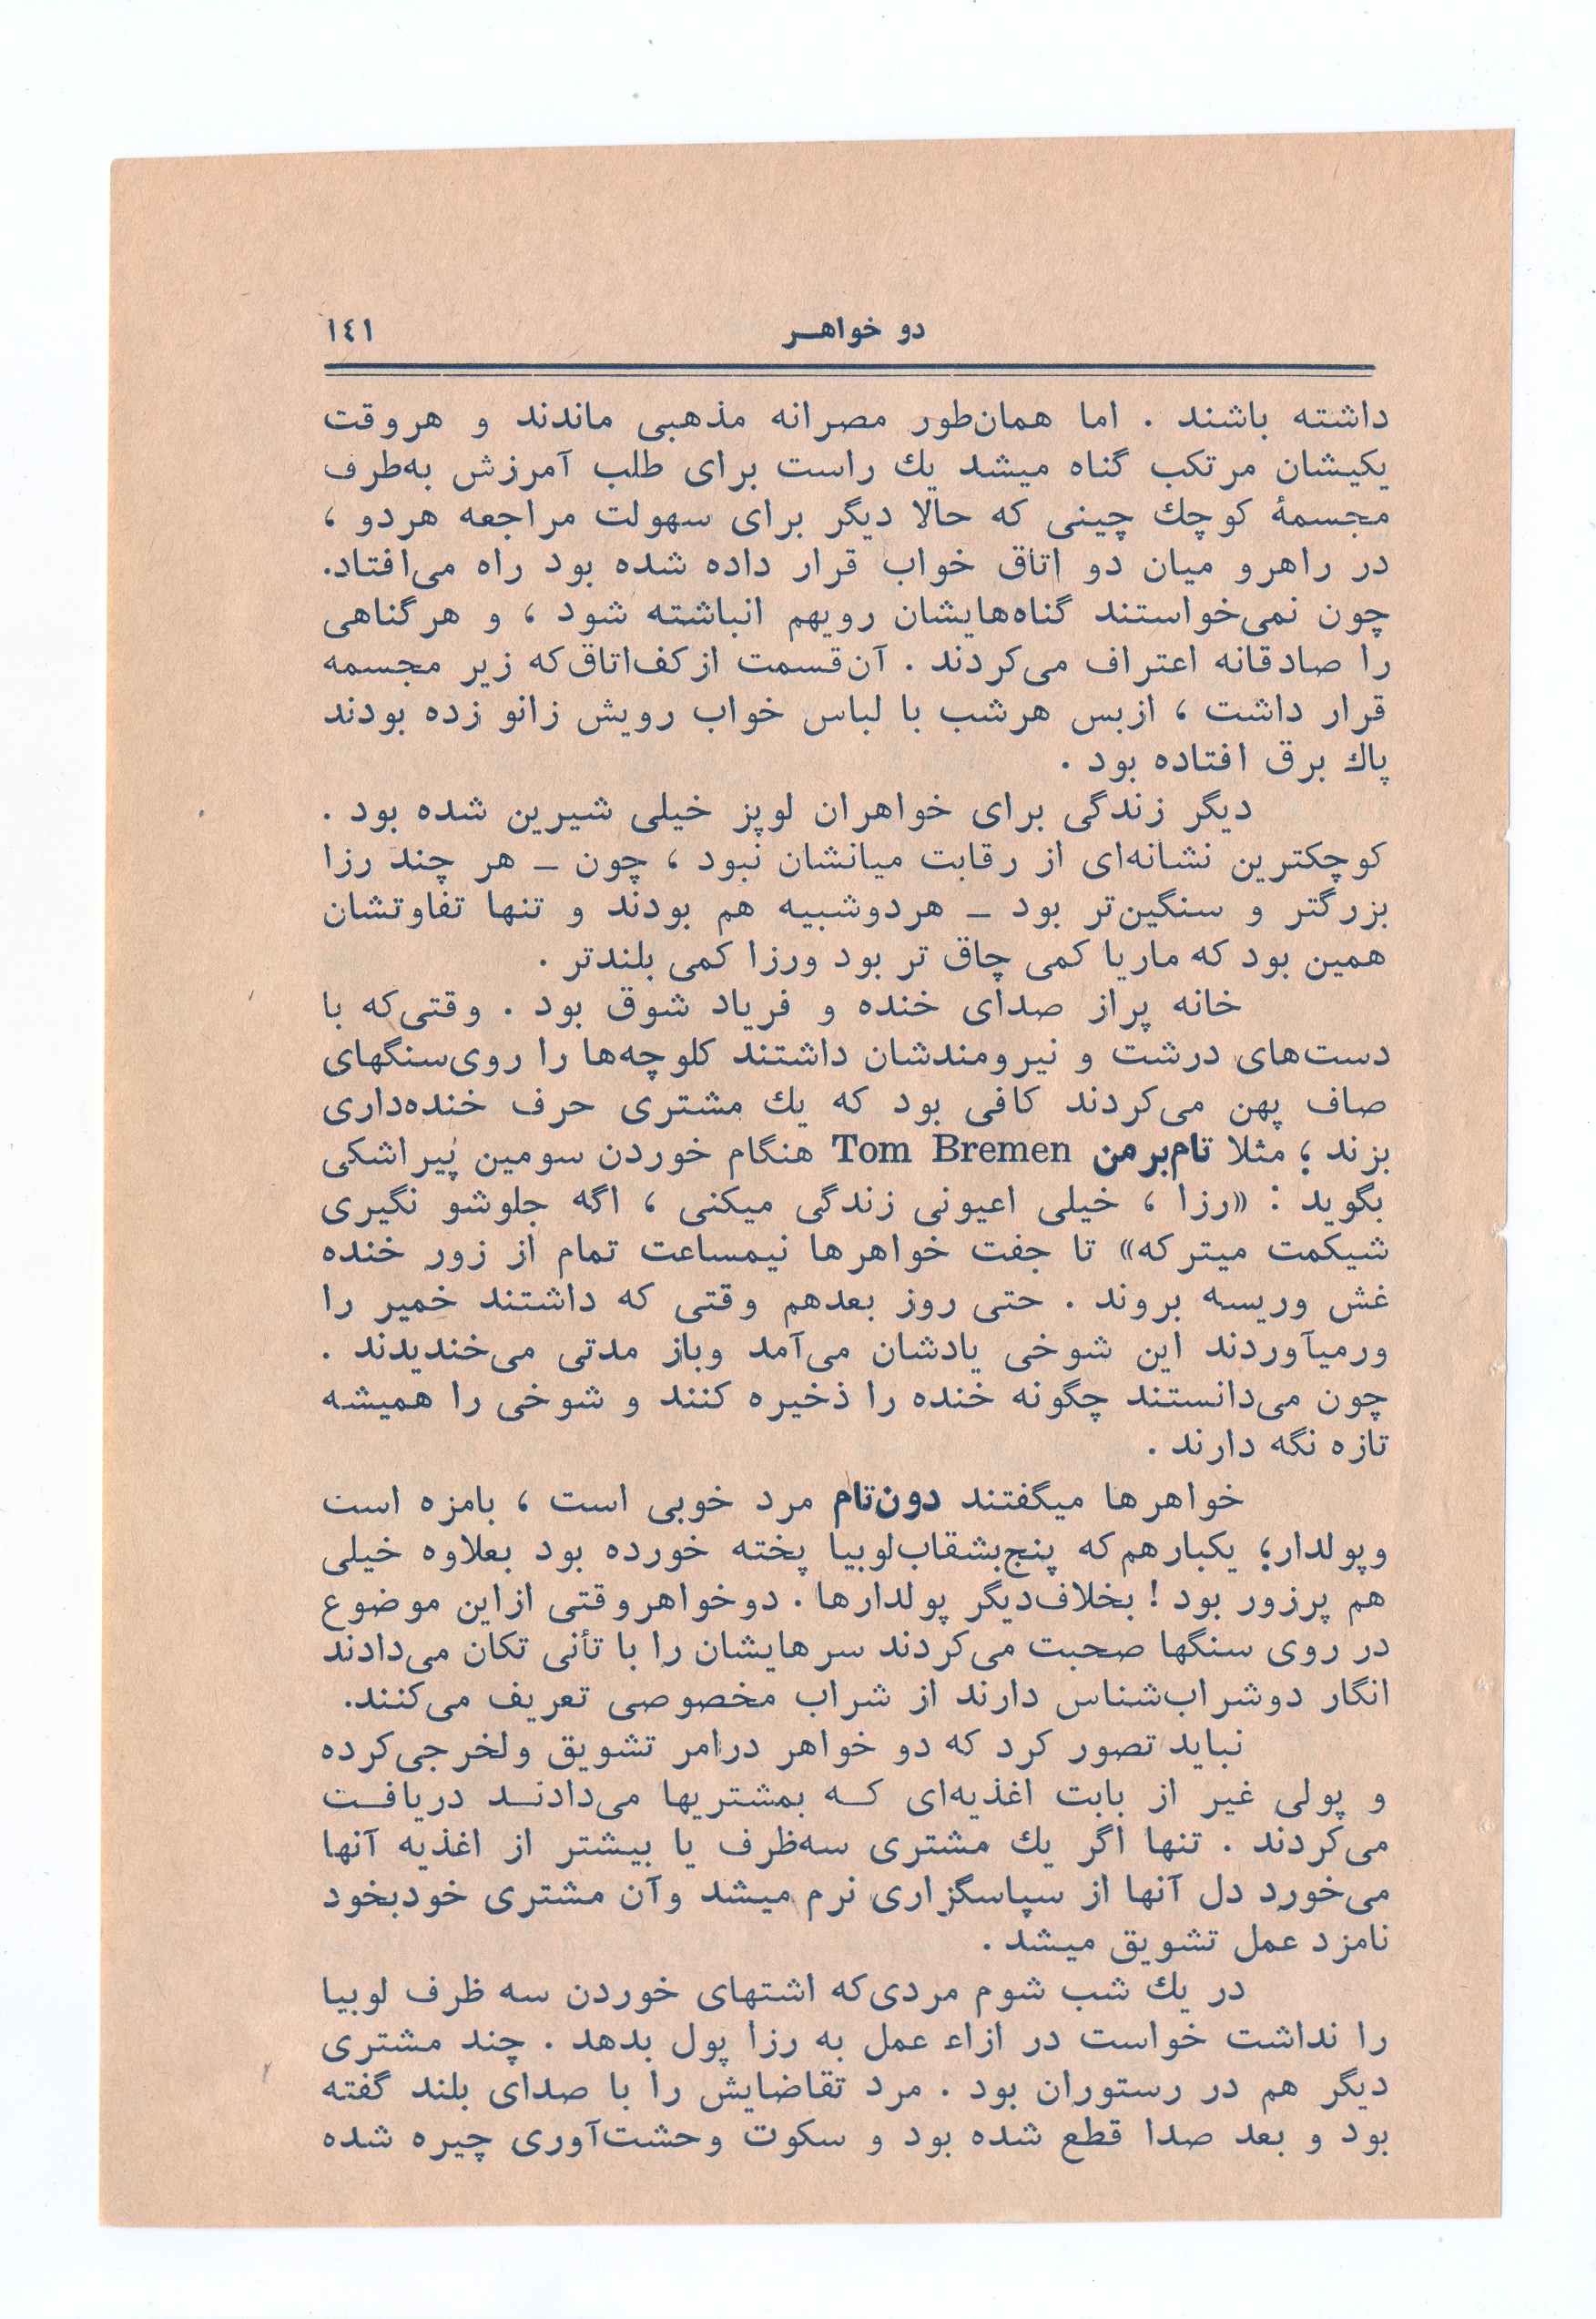 دو خواهر ۱٤۱
داشته باشند . اما همان‌طور مصرانه مذهبی ماندند و هروقت
یکیشان مرتکب گناه میشد یك راست برای طلب آمرزش به‌طرف
مجسمهٔ کوچك چینی که حالا دیگر برای سهولت مراجعه هردو ،
در راهرو میان دو اتاق خواب قرار داده شده بود راه می‌افتاد.
چون نمی‌خواستند گناه‌هایشان رویهم انباشته شود ، و هرگناهی
را صادقانه اعتراف می‌کردند . آن‌قسمت ازکف‌اتاق‌که زیر مجسمه
قرار داشت ، ازبس هرشب با لباس خواب رویش زانو زده بودند
پاك برق افتاده بود .
دیگر زندگی برای خواهران لوپز خیلی شیرین شده بود .
کوچکترین نشانه‌ای از رقابت میانشان نبود ، چون ـ هر چند رزا
بزرگتر و سنگین‌تر بود ـ هردوشبیه هم بودند و تنها تفاوتشان
همین بود که ماریا کمی چاق تر بود ورزا کمی بلندتر .
خانه پراز صدای خنده و فریاد شوق بود . وقتی‌که با
دست‌های درشت و نیرومندشان داشتند کلوچه‌ها را روی‌سنگهای
صاف پهن می‌کردند کافی بود که یك مشتری حرف خنده‌داری
بزند ؛ مثلا تام‌برمن Tom Bremen هنگام خوردن سومین پیراشکی
بگوید : «رزا ، خیلی اعیونی زندگی میکنی ، اگه جلوشو نگیری
شیکمت میترکه» تا جفت خواهرها نیمساعت تمام از زور خنده
غش وریسه بروند . حتی روز بعدهم وقتی که داشتند خمیر را
ورمیآوردند این شوخی یادشان می‌آمد وباز مدتی می‌خندیدند .
چون می‌دانستند چگونه خنده را ذخیره کنند و شوخی را همیشه
تازه نگه دارند .
خواهرها میگفتند دون‌تام مرد خوبی است ، بامزه است
وپولدار؛ یکبارهم‌که پنج‌بشقاب‌لوبیا پخته خورده بود بعلاوه خیلی
هم پرزور بود ! بخلاف‌دیگر پولدارها . دوخواهروقتی ازاین موضوع
در روی سنگها صحبت می‌کردند سرهایشان را با تأنی تکان می‌دادند
انگار دوشراب‌شناس دارند از شراب مخصوصی تعریف می‌کنند.
نباید تصور کرد که دو خواهر درامر تشویق ولخرجی‌کرده
و پولی غیر از بابت اغذیه‌ای که بمشتریها می‌دادند دریافت
می‌کردند . تنها اگر یك مشتری سه‌ظرف یا بیشتر از اغذیه آنها
می‌خورد دل آنها از سپاسگزاری نرم میشد وآن مشتری خودبخود
نامزد عمل تشویق میشد .
در یك شب شوم مردی‌که اشتهای خوردن سه ظرف لوبیا
را نداشت خواست در ازاء عمل به رزا پول بدهد . چند مشتری
دیگر هم در رستوران بود . مرد تقاضایش را با صدای بلند گفته
بود و بعد صدا قطع شده بود و سکوت وحشت‌آوری چیره شده